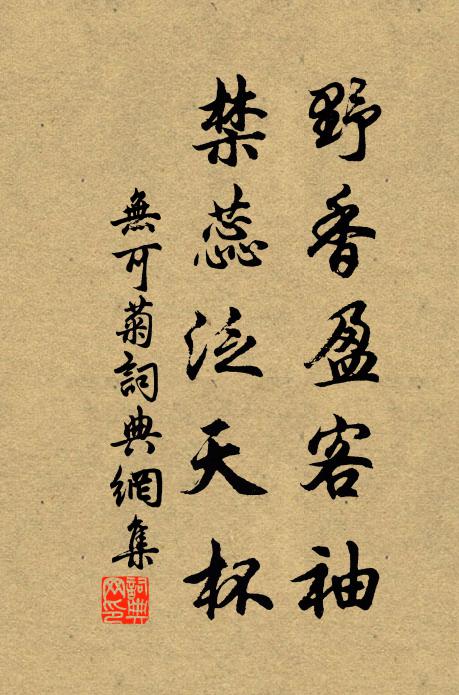 野香盈客袖
禁蕊泛天杯
無可菊詞典網集
詞典網印